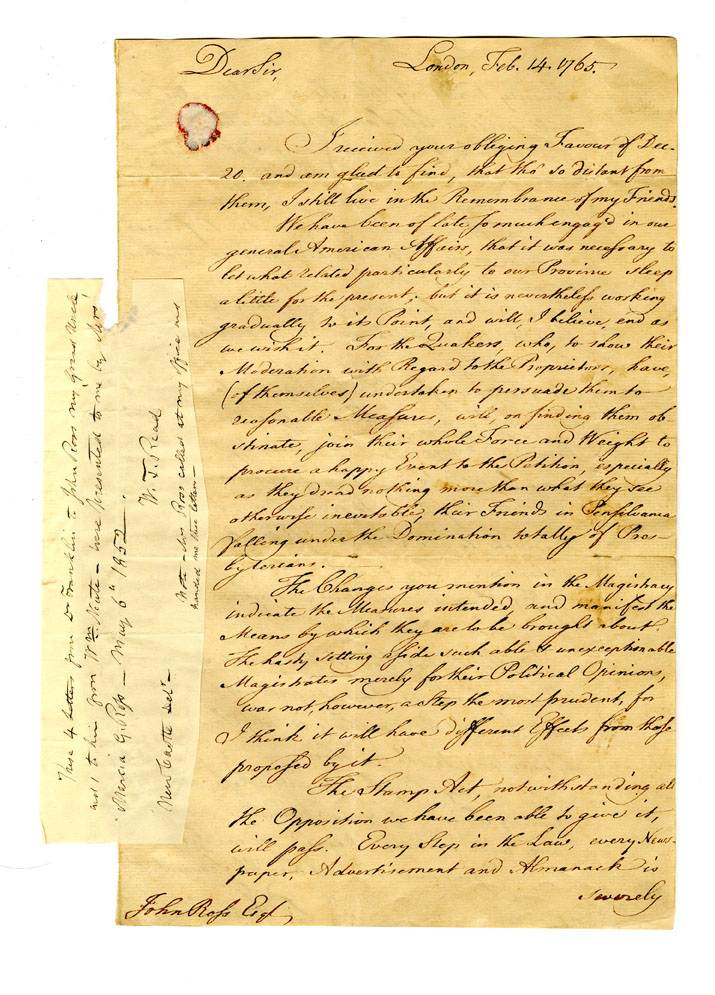 Dear Sir, London, Feb. 14. 1765.
I received your obliging Favour of Dec-
20. and am glad to find, that tho' so distant from
them, I still live in the Remembrance of my Friends.
We have been of late so much engag'd in our
general American Affairs, that it was necessary to
let what related particularly to our Province sleep
a little for the present; but it is nevertheless working
gradually to its Point, and will, I believe, end as
we wish it. For the Quakers, who, to show their
Moderation with Regard to the Proprietors, have,
(of themselves) undertaken to persuade them to
reasonable Measures, will, on finding them ob-
stinate, join their whole Force and Weight to
procure a happy Event to the Petition, especially
as they dread nothing more than what they see
otherwise inevitable, their Friends in Pensilvania
falling under the Domination totally of Pres-
byterians.
The Changes you mention in the Magistracy
indicate the Measures intended, and manifest the
Means by which they are to be brought about.
The hasty setting aside such able & unexceptionable
Magistrates merely for their Political Opinions,
was not, however, a Step the most prudent, for
I think it will have different Effects from those
proposed by it.
The Stamp Act, notwithstanding all
the Opposition we have been able to give it,
will pass. Every Step in the Law, every News-
paper, Advertisement and Almanack is
severely
John Ross Esqr
These 4 letters from Dr Franklin to John Ross my Grand Uncle
and 1 to him from Wm. — were presented to me by Mrs
Mercia G. Ross — May 6th 1852.
W. T. Read
New Castle Del —
Note — Mrs Ross called at my office and
handed me these letters —